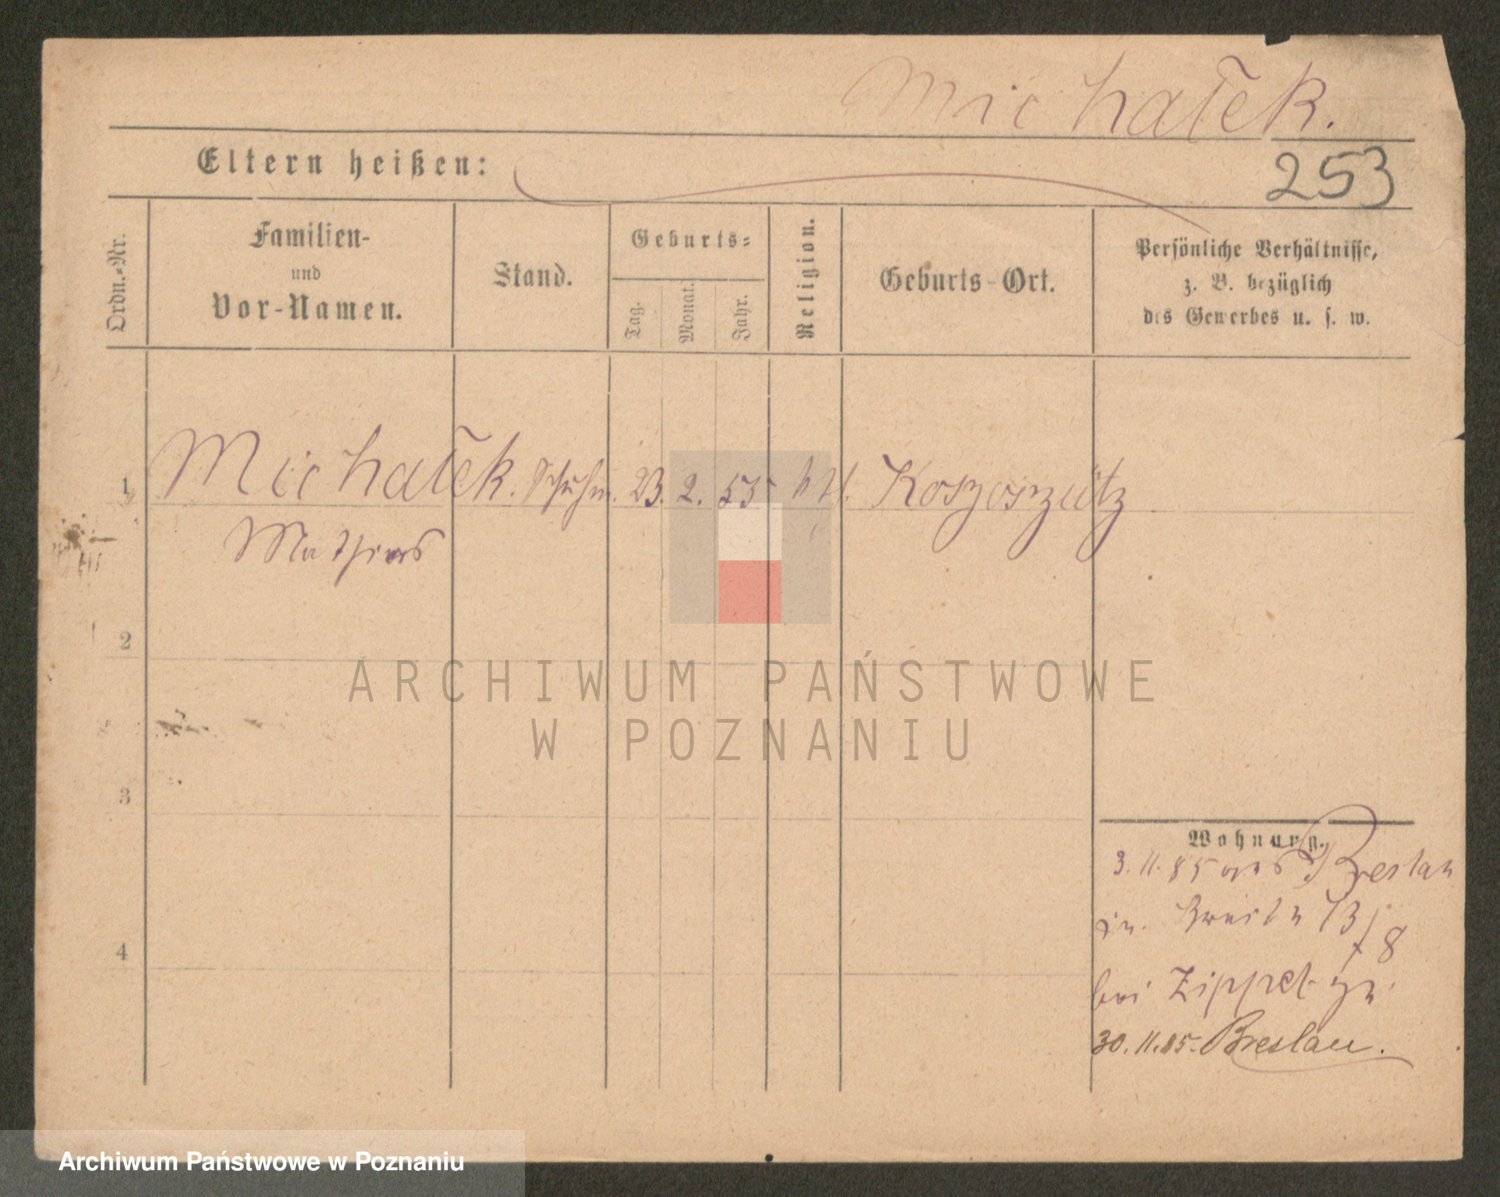 Michałek.
Eltern heißen:
253
Ordn.-Nr.
Familien-
und
Vor-Namen.
Stand.
Geburts-
Tag.
Monat.
Jahr.
Religion.
Geburts-Ort.
Persönliche Verhältnisse,
z. B. bezüglich
des Gewerbes u. s. w.
1 Michałek. Schuhm. 23. 2. 55
Mathias
2
3
4
ARCHIWUM PAŃSTWOWE
W POZNANIU
Wohnung.
3. 11. 85 aus Breslau
in Breite 13/8
bei Zippel
30. 11. 85. Breslau.
Archiwum Państwowe w Poznaniu